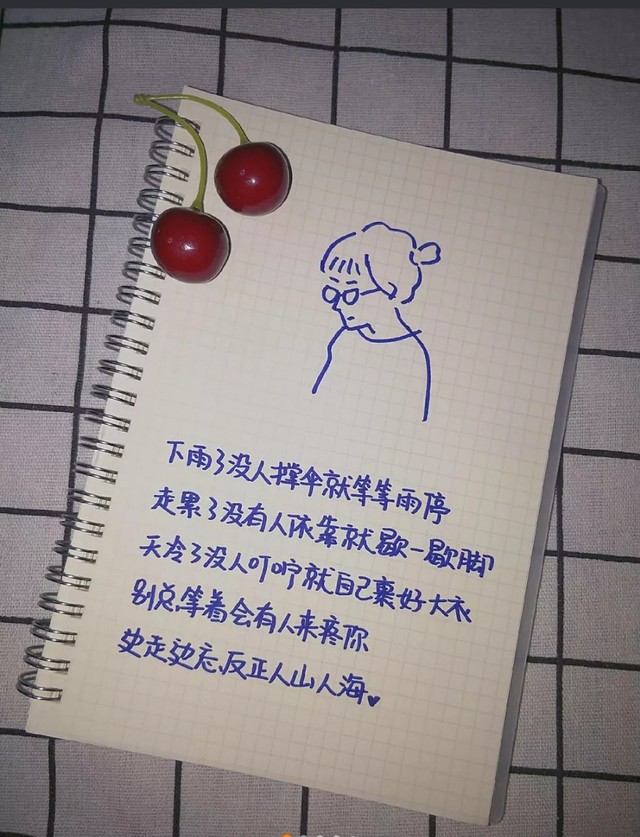 下雨了没人撑伞就等等雨停
走累了没有人依靠就歇一歇脚
天冷了没人叮咛就自己裹好大衣
别总等着会有人来疼你
边走边忘、反正人山人海